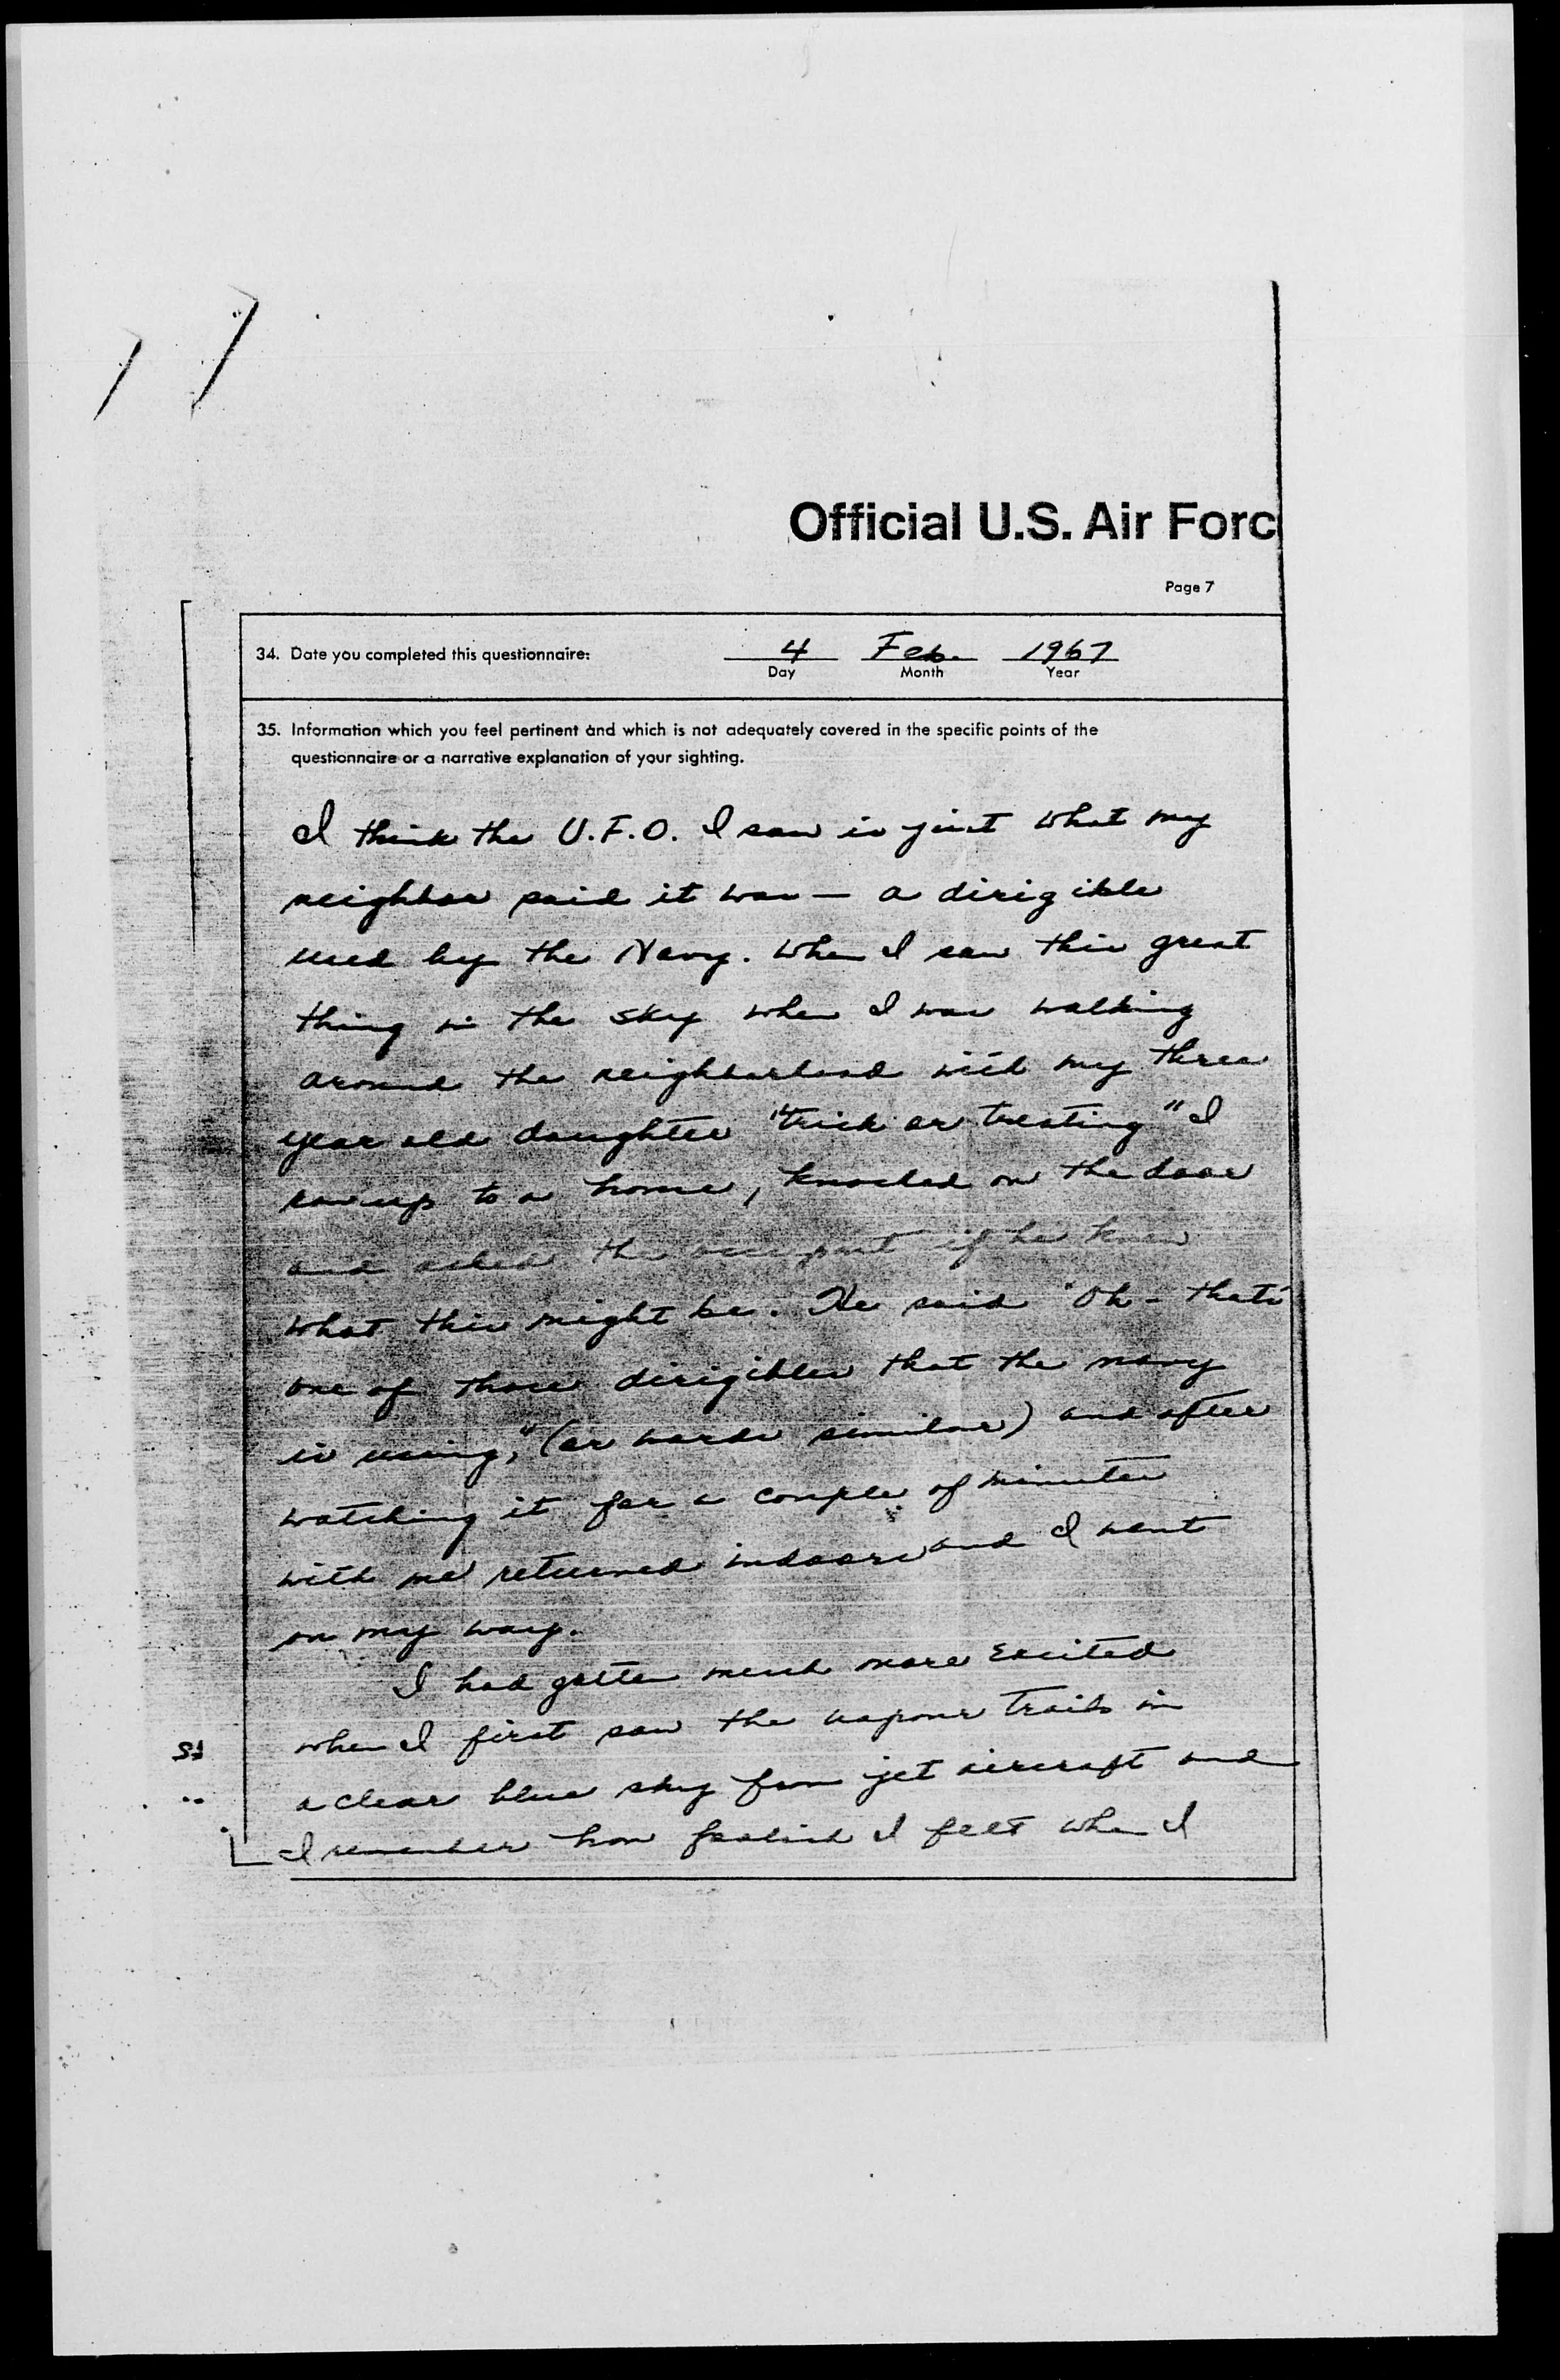 Official U.S. Air Forc
Page 7
34. Date you completed this questionnaire: 4 Feb. 1967
Day Month Year
35. Information which you feel pertinent and which is not adequately covered in the specific points of the
questionnaire or a narrative explanation of your sighting.
I think the U.F.O. I saw is just what my
neighbor said it was — a dirigible
used by the Navy. When I saw this great
thing in the sky when I was walking
around the neighborhood with my three
year old daughter "trick or treating" I
ran up to a home, knocked on the door
and asked the occupant if he knew
what this might be. He said "Oh - thats
one of those dirigibles that the navy
is using," (or words similar) and after
watching it for a couple of minutes
with me returned indoors and I went
on my way.
I had gotten much more excited
when I first saw the vapour trails in
a clear blue sky from jet aircraft and
I remember how foolish I felt when I